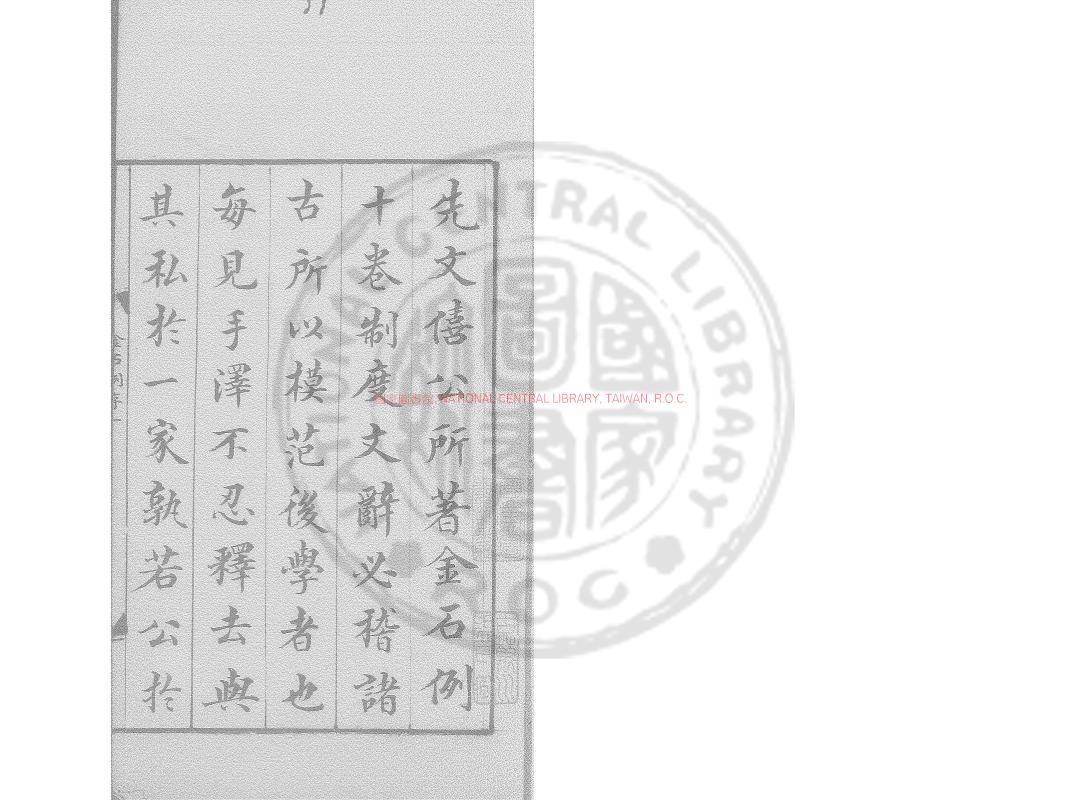 先文僖公所著金石例
十卷制度文辭必稽諸
古所以模范後學者也
每見手澤不忍釋去與
其私於一家孰若公於
NATIONAL CENTRAL LIBRARY, TAIWAN, R.O.C.
CENTRAL LIBRARY
R O C
國家圖書館